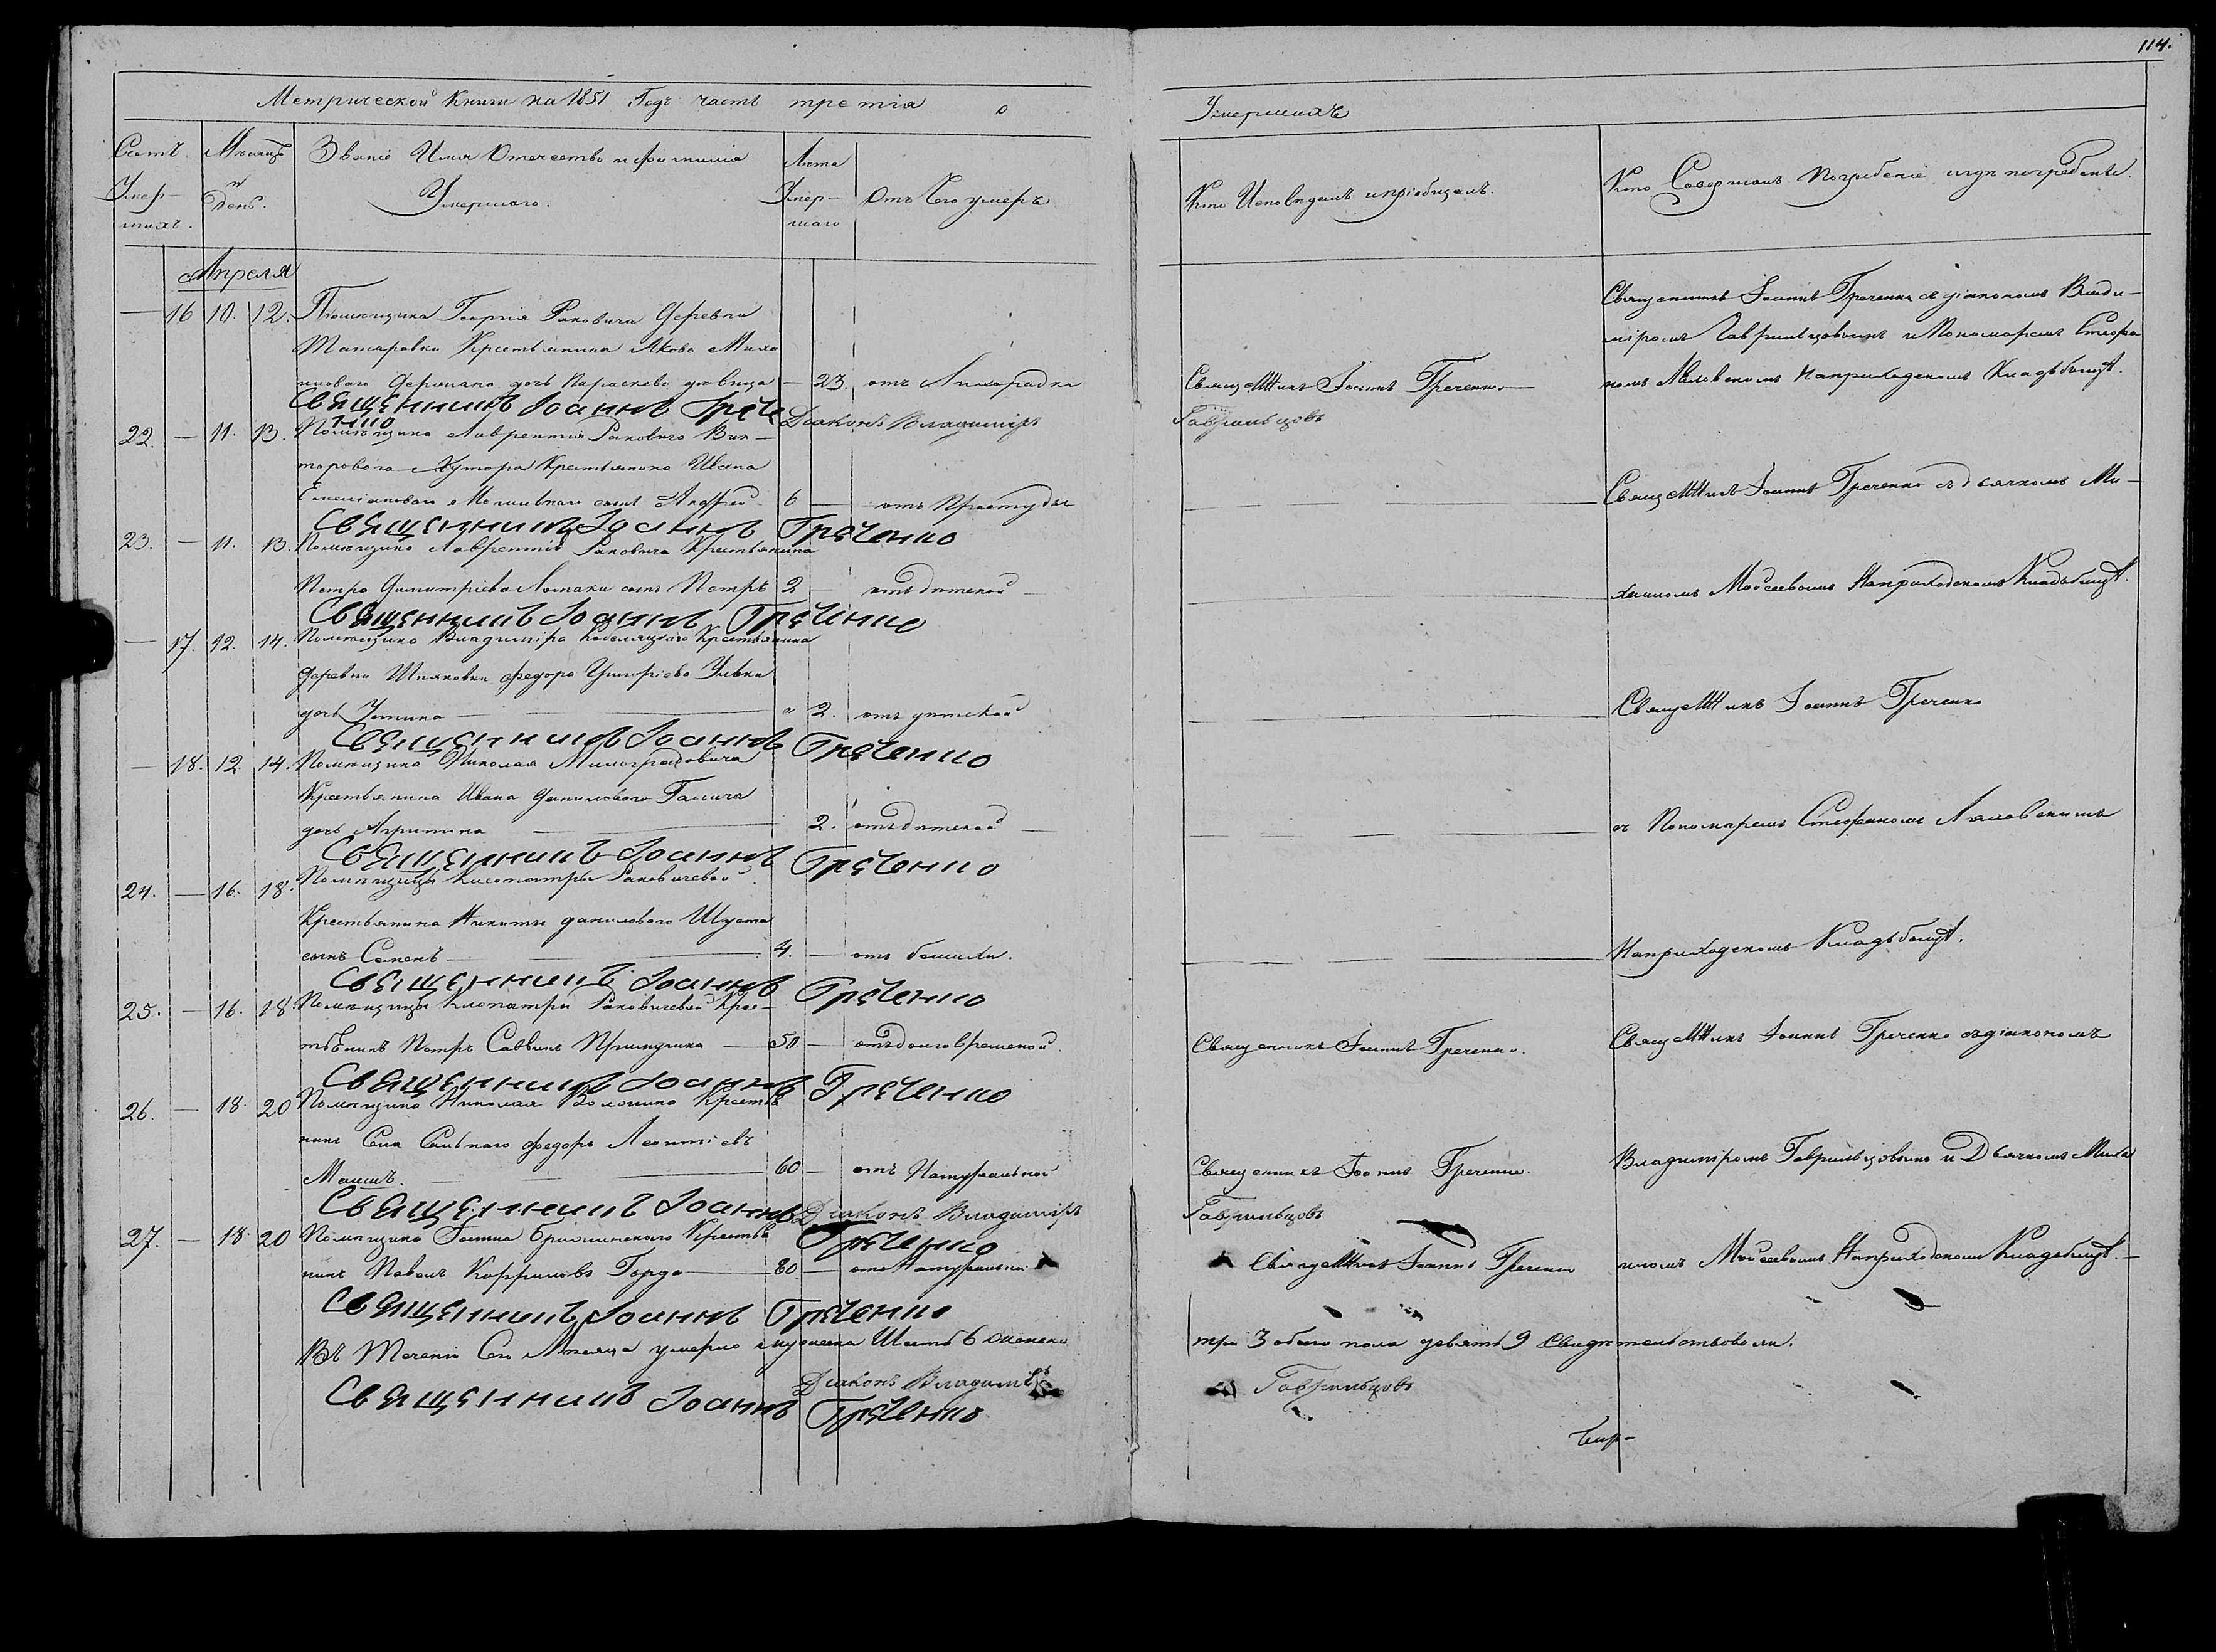 114.
Метрической Книги на 1851 Годъ часть третiя о
Умершихъ
Счетъ Умер-шихъ.
Мѣсяцъ и День.
Званiе Имя Отечество и фамилiя Умершаго.
Лѣта Умер-шаго
Отъ Чего умеръ
Кто Исповѣдалъ и прiобщалъ.
Кто Совершалъ Погребенiе и гдѣ погребены.
Апреля
— 16 10. 12. Помѣщика Георгiя Раковича Деревни
крестьянина Якова Миха
иловаго дочь Параскева девица — 23 отъ Лихорадки
Священникъ Iоаннъ Греченко
Священникъ Iоаннъ Греченко съ дiакономъ Влади-
мiромъ Гаврильцовымъ и Пономаремъ Стефа
номъ на приходскомъ Кладбищѣ.
Священникъ Iоаннъ Грече
нко
Дiаконъ Владимiръ
Гаврильцовъ
22. — 11. 13. Помѣщика Лаврентiя Раковича Вик-
торовага Хутора Крестьянина Ивана
Емелiановаго сынъ Андрей 6 — отъ Простуды
Священникъ Iоаннъ Греченко съ дьячкомъ Ми-
Священникъ Iоаннъ Греченко
23. — 11. 13. Помѣщика Лаврентiя Раковича Крестьянина
Петра Димитрiева Ломаки сынъ Петръ 2 — отъ дѣтской
хаиломъ Мойсеевымъ на приходскомъ Кладбищѣ.
Священникъ Iоаннъ Греченко
— 17. 12. 14. Помѣщика Владимiра Кобеляцкаго Крестьянина
деревни Шпаковки федора Григорiева
дочь Устина — „ 2. отъ дѣтской
Священникъ Iоаннъ Греченко
Священникъ Iоаннъ Греченко
— 18. 12. 14. Помѣщика Николая Милорадовича
Крестьянина Ивана Даниловаго Галича
дочь Агрипина — 2. отъ дѣтской
съ Пономаремъ Стефаномъ
Священникъ Iоаннъ Греченко
24. — 16. 18. Помѣщицы Клеопатры Раковичевой
Крестьянина Никиты даниловаго Шуста
сынъ Семенъ — 4. — отъ бешихи.
На приходскомъ Кладбищѣ.
Священникъ Iоаннъ Греченко
25. — 16. 18. Помѣщицы Клеопатры Раковичевой Крес-
тьянинъ Петръ Саввинъ — 50 — отъ долговременной.
Священникъ Iоаннъ Греченко.
Священникъ Iоаннъ Греченко съ дiакономъ
Священникъ Iоаннъ Греченко
26. — 18. 20 Помѣщика Николая Волошина Крестья
нинъ Села федоръ Леонтiевъ
— 60 — отъ Натуральной
Священникъ Iоаннъ Греченко.
Владимiромъ Гаврильцовымъ и Дьячкомъ Миха
Священникъ Iоаннъ Греченко
Дiаконъ Владимiръ
Гаврильцовъ
27. — 18. 20 Помѣщика Крестья
нинъ Павелъ Горда — 80 — отъ Натуральной
Священникъ Iоаннъ Греченко
иломъ Мойсеевымъ На приходскомъ Кладбищѣ. —
Священникъ Iоаннъ Греченко
Въ Теченiи Сего Мѣсяца умерло мужеска Шесть 6 женска
три 3 обоего пола девять 9 Свидѣтельствовали.
Священникъ Iоаннъ Греченко
Дiаконъ Владимiръ
Гаврильцовъ